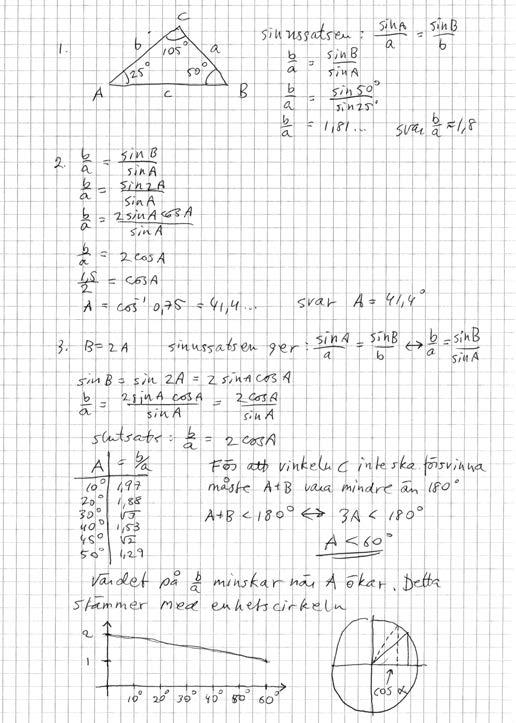 1.
C
b
105°
a
25°
50°
A
c
B
sinussatsen: sinA/a = sinB/b
b/a = sinB/sinA
b/a = sin50°/sin25°
b/a = 1,81... svar b/a ≈ 1,8
2. b/a = sinB/sinA
b/a = sin2A/sinA
b/a = 2sinA cosA/sinA
b/a = 2cosA
1,5/2 = cosA
A = cos⁻¹ 0,75 = 41,4... svar A = 41,4°
3. B=2A sinussatsen ger: sinA/a = sinB/b ↔ b/a = sinB/sinA
sinB = sin 2A = 2 sinA cosA
b/a = 2sinA cosA/sinA = 2cosA/sinA
slutsats: b/a = 2cosA
A = b/a
10° 1,97
20° 1,88
30° √3
40° 1,53
45° √2
50° 1,29
För att vinkeln C inte ska försvinna
måste A+B vara mindre än 180°
A+B < 180° ↔ 3A < 180°
A < 60°
Värdet på b/a minskar när A ökar. Detta
stämmer med enhetscirkeln
2
1
10° 20° 30° 40° 50° 60°
cos α